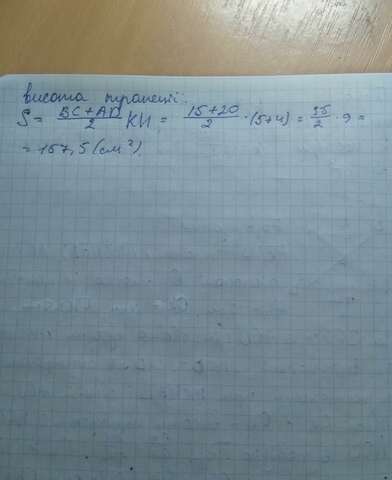 висота трапеції:
S = \frac{BC + AD}{2} KH = \frac{15+20}{2} · (5+4) = \frac{35}{2} · 9 =
= 157,5 (см²).